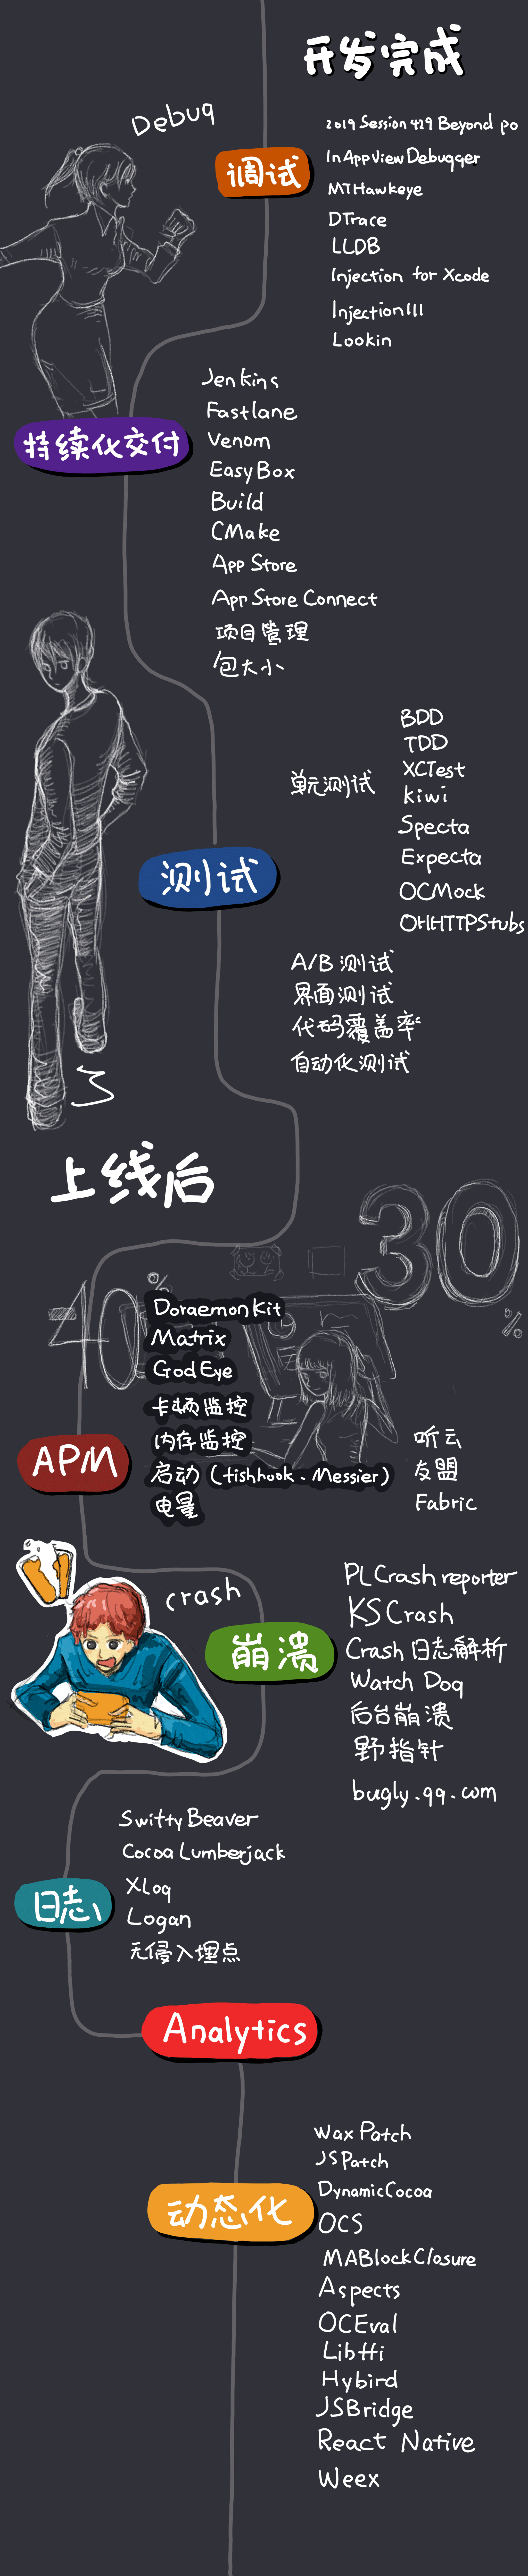 开发完成
Debug
调试
2019 Session 429 Beyond po
In App View Debugger
MTHawkeye
DTrace
LLDB
Injection for Xcode
InjectionIII
Lookin
持续化交付
Jenkins
Fastlane
Venom
EasyBox
Build
CMake
App Store
App Store Connect
项目管理
包大小
测试
单元测试
BDD
TDD
XCTest
kiwi
Specta
Expecta
OCMock
OHHTTPStubs
A/B 测试
界面测试
代码覆盖率
自动化测试
上线后
30
%
40
%
APM
DoraemonKit
Matrix
GodEye
卡顿监控
内存监控
启动（fishhook、Messier）
电量
听云
友盟
Fabric
crash
崩溃
PLCrashreporter
KSCrash
Crash 日志解析
Watch Dog
后台崩溃
野指针
bugly.qq.com
日志
Swifty Beaver
Cocoa Lumberjack
XLog
Logan
无侵入埋点
Analytics
动态化
Wax Patch
JSPatch
DynamicCocoa
OCS
MABlockClosure
Aspects
OCEval
Libffi
Hybird
JSBridge
React Native
Weex